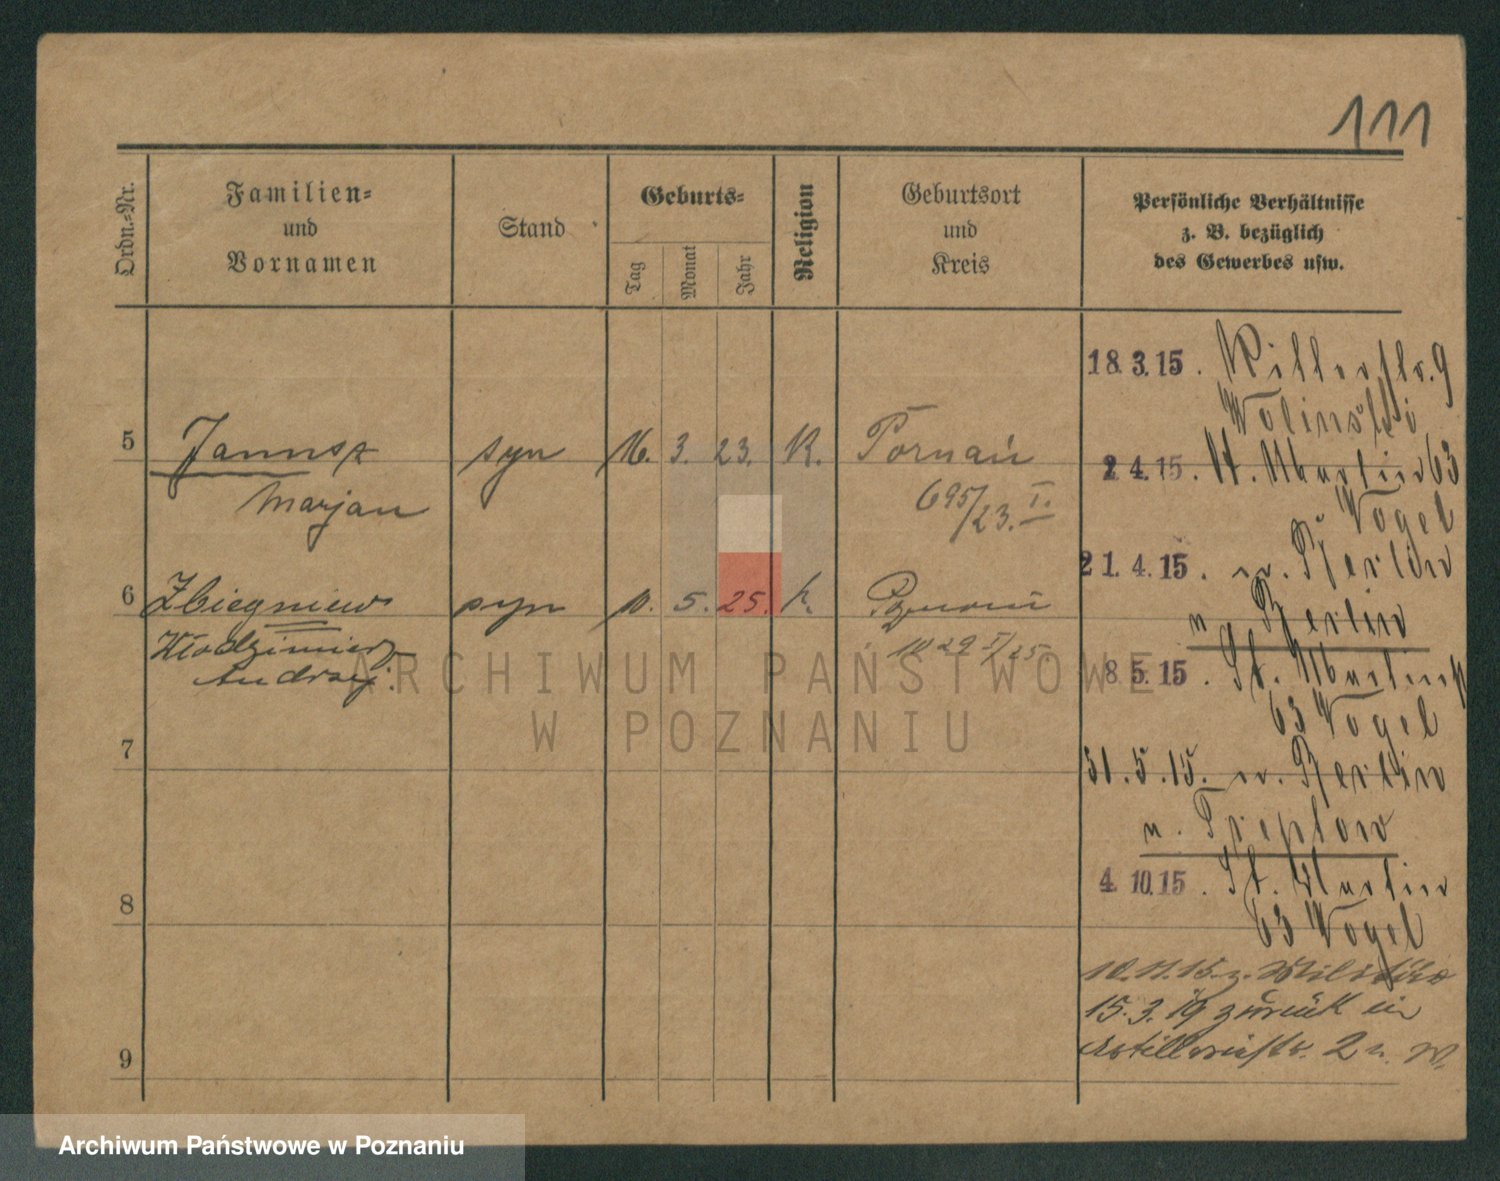 111
Ordn.-Nr.
Familien-
und
Vornamen
Stand
Geburts-
Tag
Monat
Jahr
Religion
Geburtsort
und
Kreis
Persönliche Verhältnisse
z. B. bezüglich
des Gewerbes usw.
18.3.15. Ritterstr. 9
Wolinski
5 Janusz syn 16. 3. 23. K. Poznań
Marjan
695/23. I.
2 4.15. St. Martin 63
Vogel
21.4.15. n. Berlin
n. Berlin
6 Zbiegniew syn 10. 5. 25. k. Poznań
Włodzimierz
Andrzej.
1029 I/25.
8 5.15. St. Martin
63 Vogel
31.5.15. n. Berlin
n. Treptow
4.10.15. St. Martin
63 Vogel
10.11.15. z. Militär
15.3.19 zurück in
Artilleriestr. 2
7
8
9
ARCHIWUM PAŃSTWOWE
W POZNANIU
Archiwum Państwowe w Poznaniu